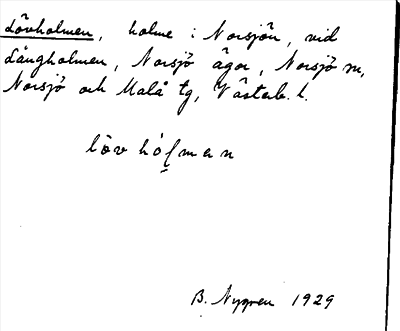 Lövholmen, holme i Norsjön, vid
Långholmen, Norsjö ägor, Norsjö sn,
Norsjö och Malå tg, Västerb. l.
löv hólmen
B. Nygren 1929